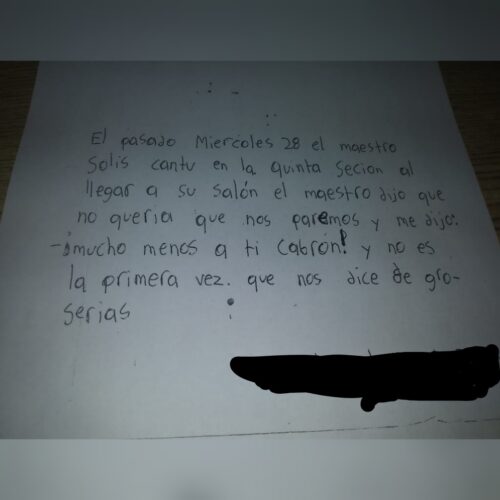 El pasado Miercoles 28 el maestro
Solis cantu en la quinta secion al
llegar a su salón el maestro dijo que
no queria que nos paremos y me dijo:
-¡mucho menos a ti cabrón! y no es
la primera vez. que nos dice de gro-
serias